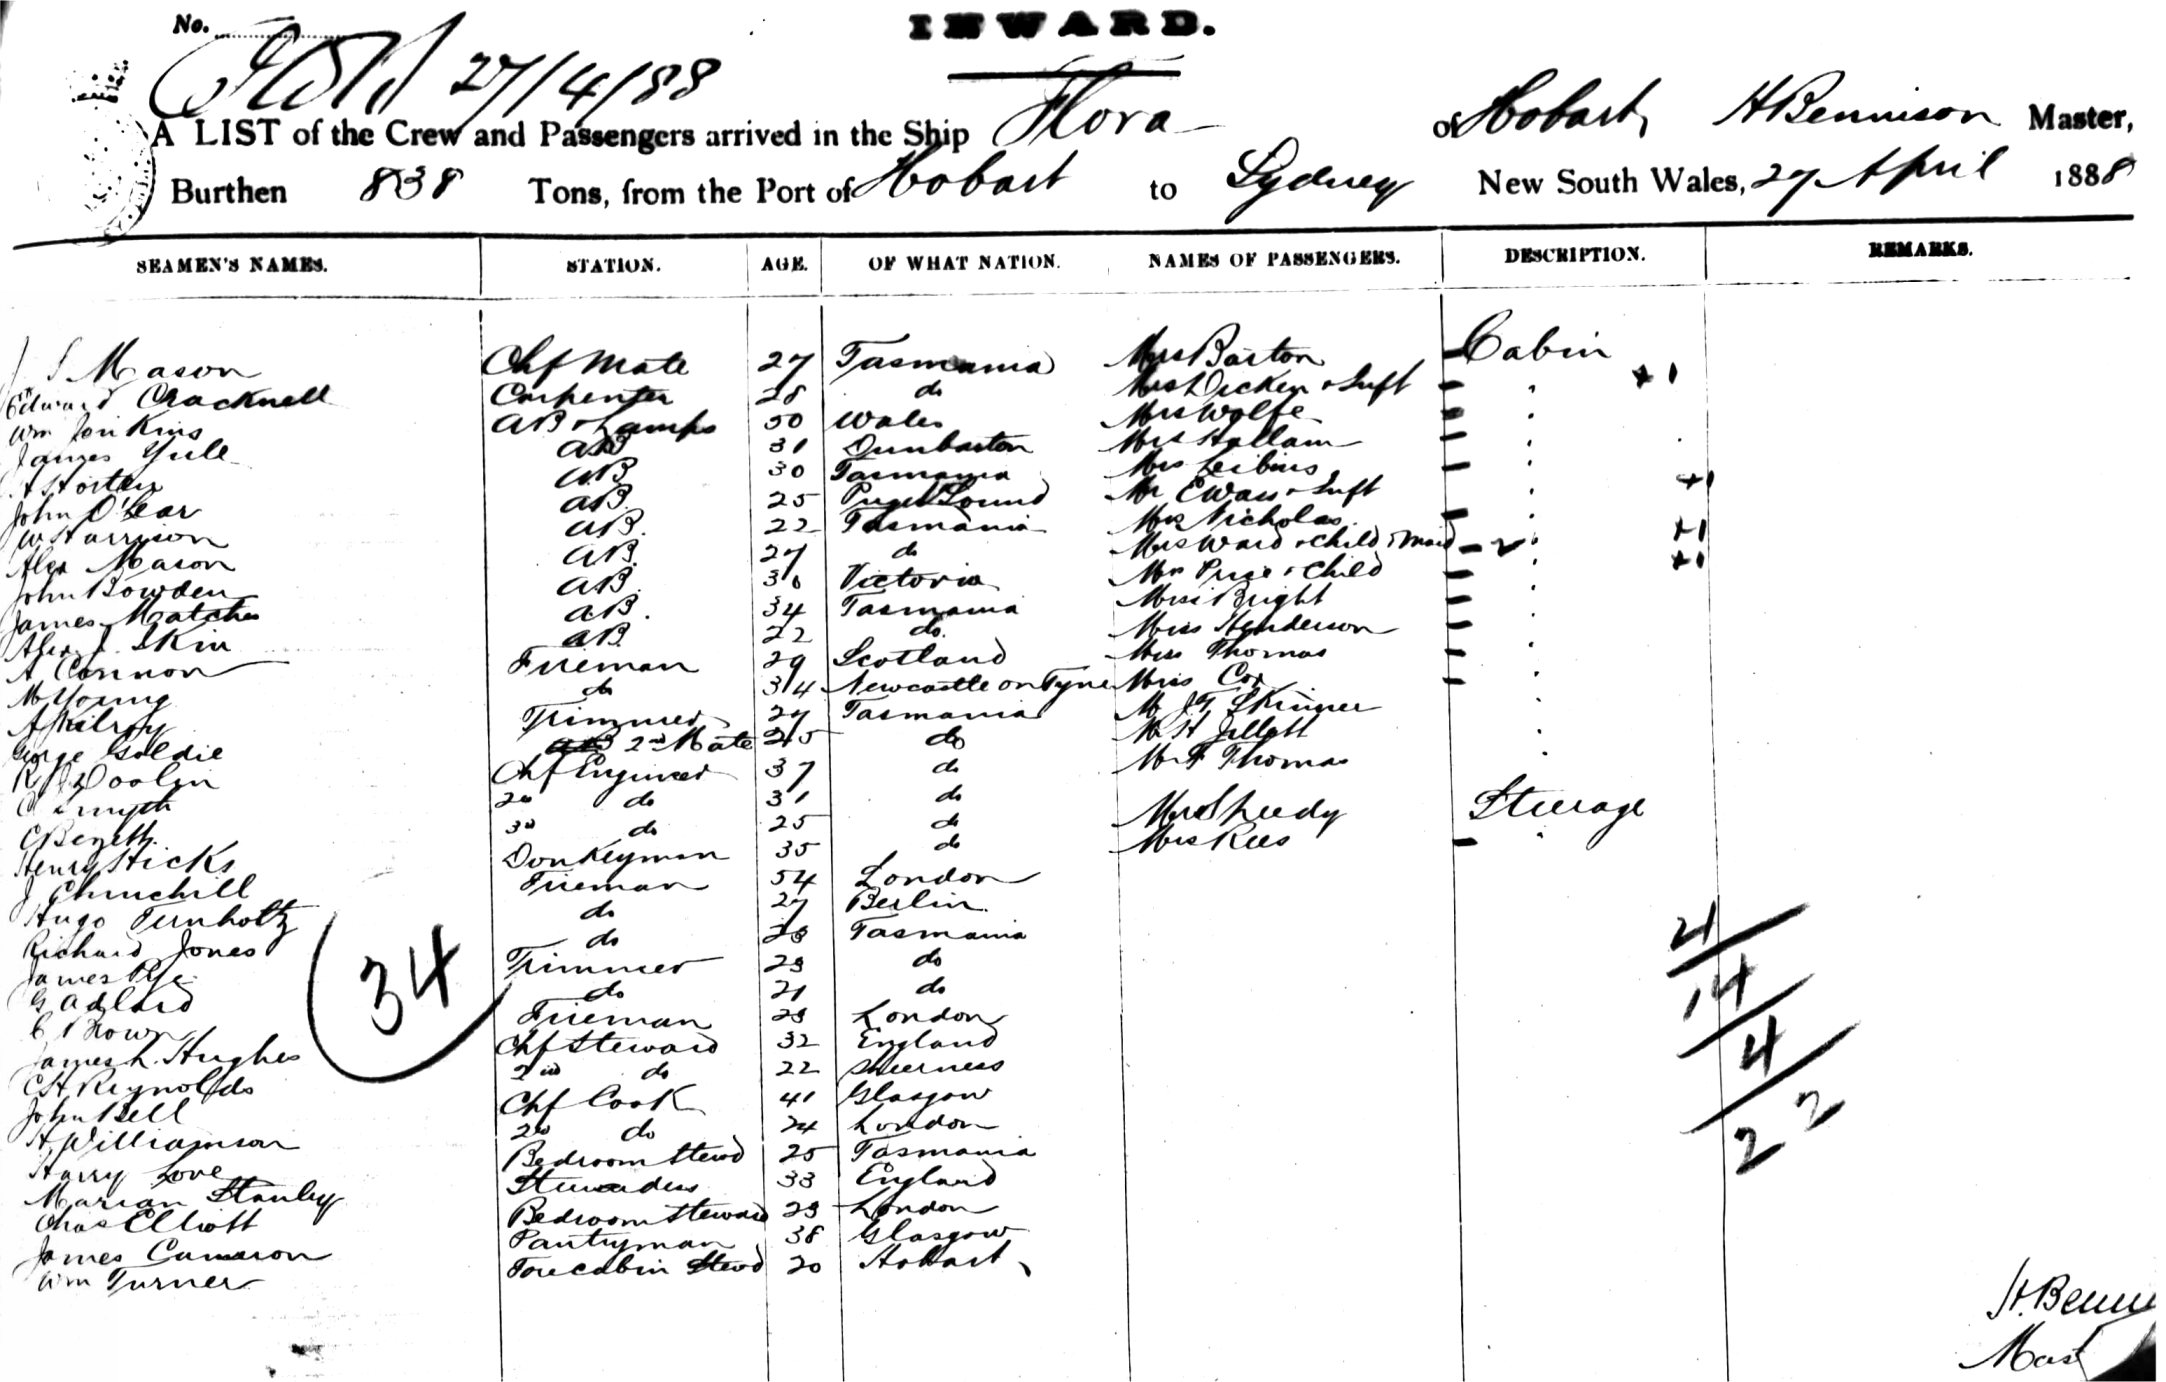 No.
INWARD.
27/4/88
A LIST of the Crew and Passengers arrived in the Ship Flora of Hobart, H Bennison Master,
Burthen 838 Tons, from the Port of Hobart to Sydney New South Wales, 27 April 1888
SEAMEN'S NAMES. STATION. AGE. OF WHAT NATION. NAMES OF PASSENGERS. DESCRIPTION. REMARKS.
Mason Chf Mate 27 Tasmania Mrs Barton Cabin
Edward Cracknell Carpenter 28 do Mrs Dicken + Inft +1
Wm Jenkins AB + Lamps 50 Wales Mrs Wolfe
James Yule AB 31 Dunbarton Mrs Hallam
H Horton AB 30 Tasmania Mrs Leibius
John O'Lear AB 25 Puget Sound Mr E Wass + Inft +1
W Harrison AB. 22 Tasmania Mrs Nicholas
Alex Mason AB. 27 do Mrs Ward + Child + Maid 2 +1
John Bowden AB. 30 Victoria Price + Child +1
James Matches AB. 34 Tasmania Miss Bright
Alex. J. Skin AB 22 do. Miss Henderson
A. Connon Fireman 29 Scotland Miss Thomas
M Young do 34 Newcastle on Tyne Miss Cox
A Milroy Trimmer 27 Tasmania Mr Skinner
George Goldie 2nd Mate 25 do H Jillett
Doolin Chf Engineer 37 do Mr F Thomas
C Smyth 2nd do 31 do
C Bezett. 3d do 25 do Mrs Sheedy Steerage
Henry Hicks Donkeyman 35 do Mrs Rees
J Churchill Fireman 54 London
Hugo Turnholtz do 27 Berlin
Richard Jones do 23 Tasmania
James Pye Trimmer 23 do
G Adlard do 21 do
C Brown Fireman 23 London
James L. Hughes Chf Steward 32 England
C H Reynolds 2nd do 22 Sheerness
John Bell Chf Cook 41 Glasgow
H Williamson 2nd do 24 London
Harry Love Bedroom Stewd 25 Tasmania
Marian Stanley Stewardess 33 England
Chas Elliott Bedroom Steward 23 London
James Cameron Pantryman 38 Glasgow
Wm Turner Forecabin Stewd 20 Hobart
34
21
14
4
22
H. Benn
Mas